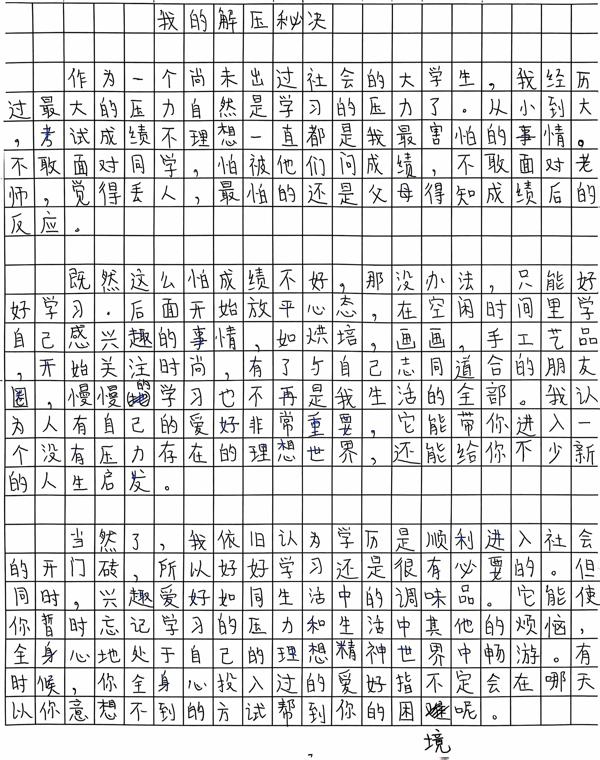 我的解压秘决
作为一个尚未出过社会的大学生，我经历
过最大的压力自然是学习的压力了。从小到大
，考试成绩不理想一直都是我最害怕的事情。
不敢面对同学，怕被他们问成绩，不敢面对老
师，觉得丢人，最怕的还是父母得知成绩后的
反应。
既然这么怕成绩不好，那没办法，只能好
好学习．后面开始放平心态，在空闲时间里学
自己感兴趣的事情，如烘培，画画，手工艺品
，开始关注时尚，有了与自己志同道合的朋友
圈，慢慢的学习也不再是我生活的全部。我认
为人有自己的爱好非常重要，它能带你进入一
个没有压力存在的理想世界，还能给你不少新
的人生启发。
当然了，我依旧认为学历是顺利进入社会
的开门砖，所以好好学习还是很有必要的。但
同时，兴趣爱好如同生活中的调味品。它能使
你暂时忘记学习的压力和生活中其他的烦恼，
全身心地处于自己的理想精神世界中畅游。有
时候，你全身心投入过的爱好指不定会在哪天
以你意想不到的方试帮到你的困境呢。